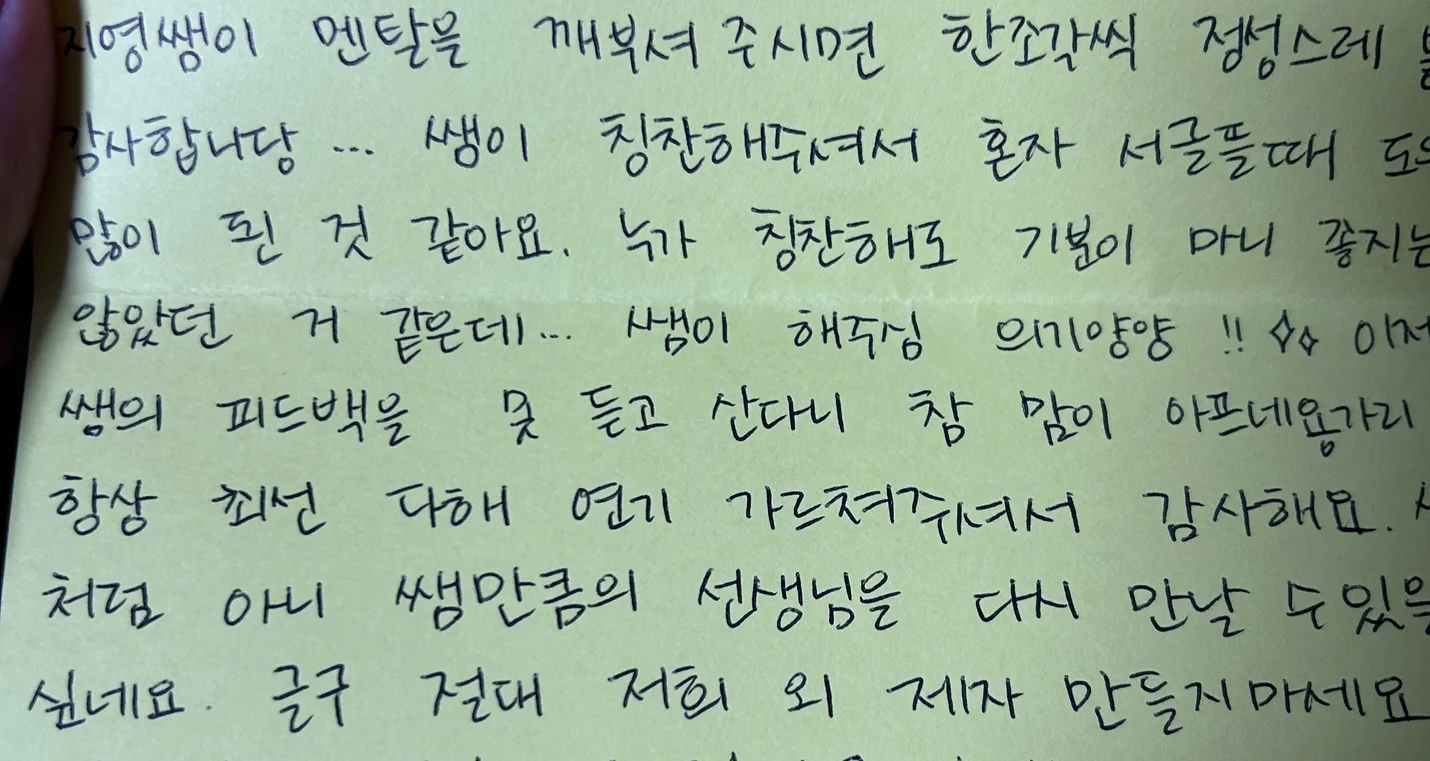 지영쌤이 멘탈을 깨부셔 주시면 한조각씩 정성스레
감사합니당 ... 쌤이 칭찬해주셔서 혼자 서글플때
많이 된 것 같아요. 누가 칭찬해도 기분이 마니 좋지는
않았던 거 같은데... 쌤이 해주심 의기양양 !! ✧✧
쌤의 피드백을 못 듣고 산다니 참 맘이 아프네용가리
항상 최선 다해 연기 가르쳐주셔서 감사해요.
처럼 아니 쌤만큼의 선생님을 다시 만날 수있을
싶네요. 글구 절대 저희 외 제자 만들지마세요